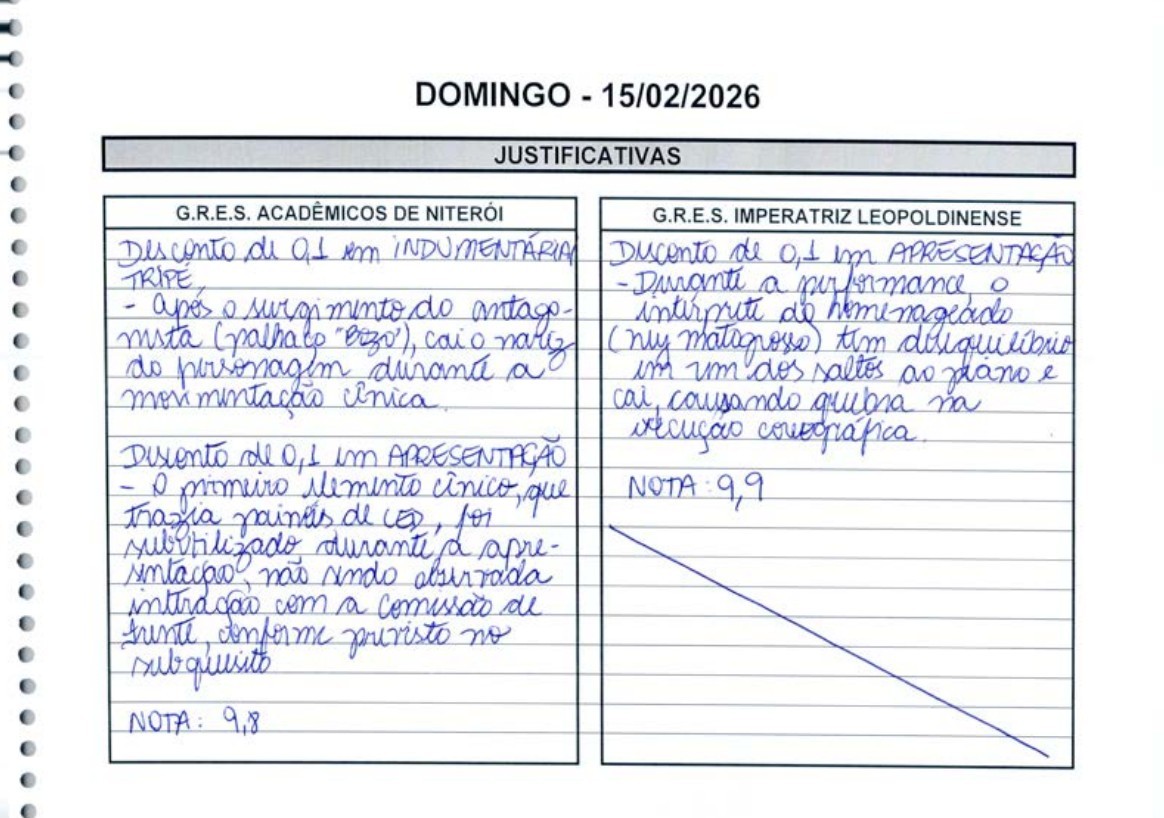 DOMINGO - 15/02/2026
JUSTIFICATIVAS
G.R.E.S. ACADÊMICOS DE NITERÓI
Desconto de 0,1 em INDUMENTÁRIA/
TRIPÉ
- Após o surgimento do antago-
nista (palhaço "BOZO"), cai o nariz
do personagem durante a
movimentação cênica.
Desconto de 0,1 em APRESENTAÇÃO
- O primeiro elemento cênico, que
trazia painéis de LED, foi
subutilizado durante a apre-
sentação, não sendo observada
interação com a Comissão de
Frente, conforme previsto no
subquesito
NOTA: 9,8
G.R.E.S. IMPERATRIZ LEOPOLDINENSE
Desconto de 0,1 em APRESENTAÇÃO
- Durante a performance, o
intérprete do homenageado
(ney matogrosso) tem desequilíbrio
em um dos saltos ao plano e
cai, causando quebra na
execução coreográfica.
NOTA: 9,9